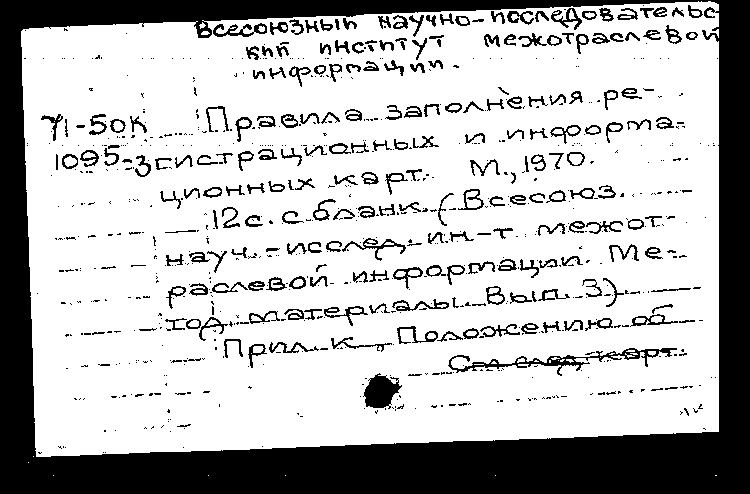 Всесоюзный научно-исследовательс-
кий институт межотраслевой
информации.
71-50к Правила заполнения ре-
1095-3 гистрационных и информа-
ционных карт. М., 1970.
12с. с бланк. (Всесоюз.
науч.-исслед. ин-т межот-
раслевой информации. Ме-
тод. материалы. Вып. 3).
Прил. к „Положению об
См. след. карт.